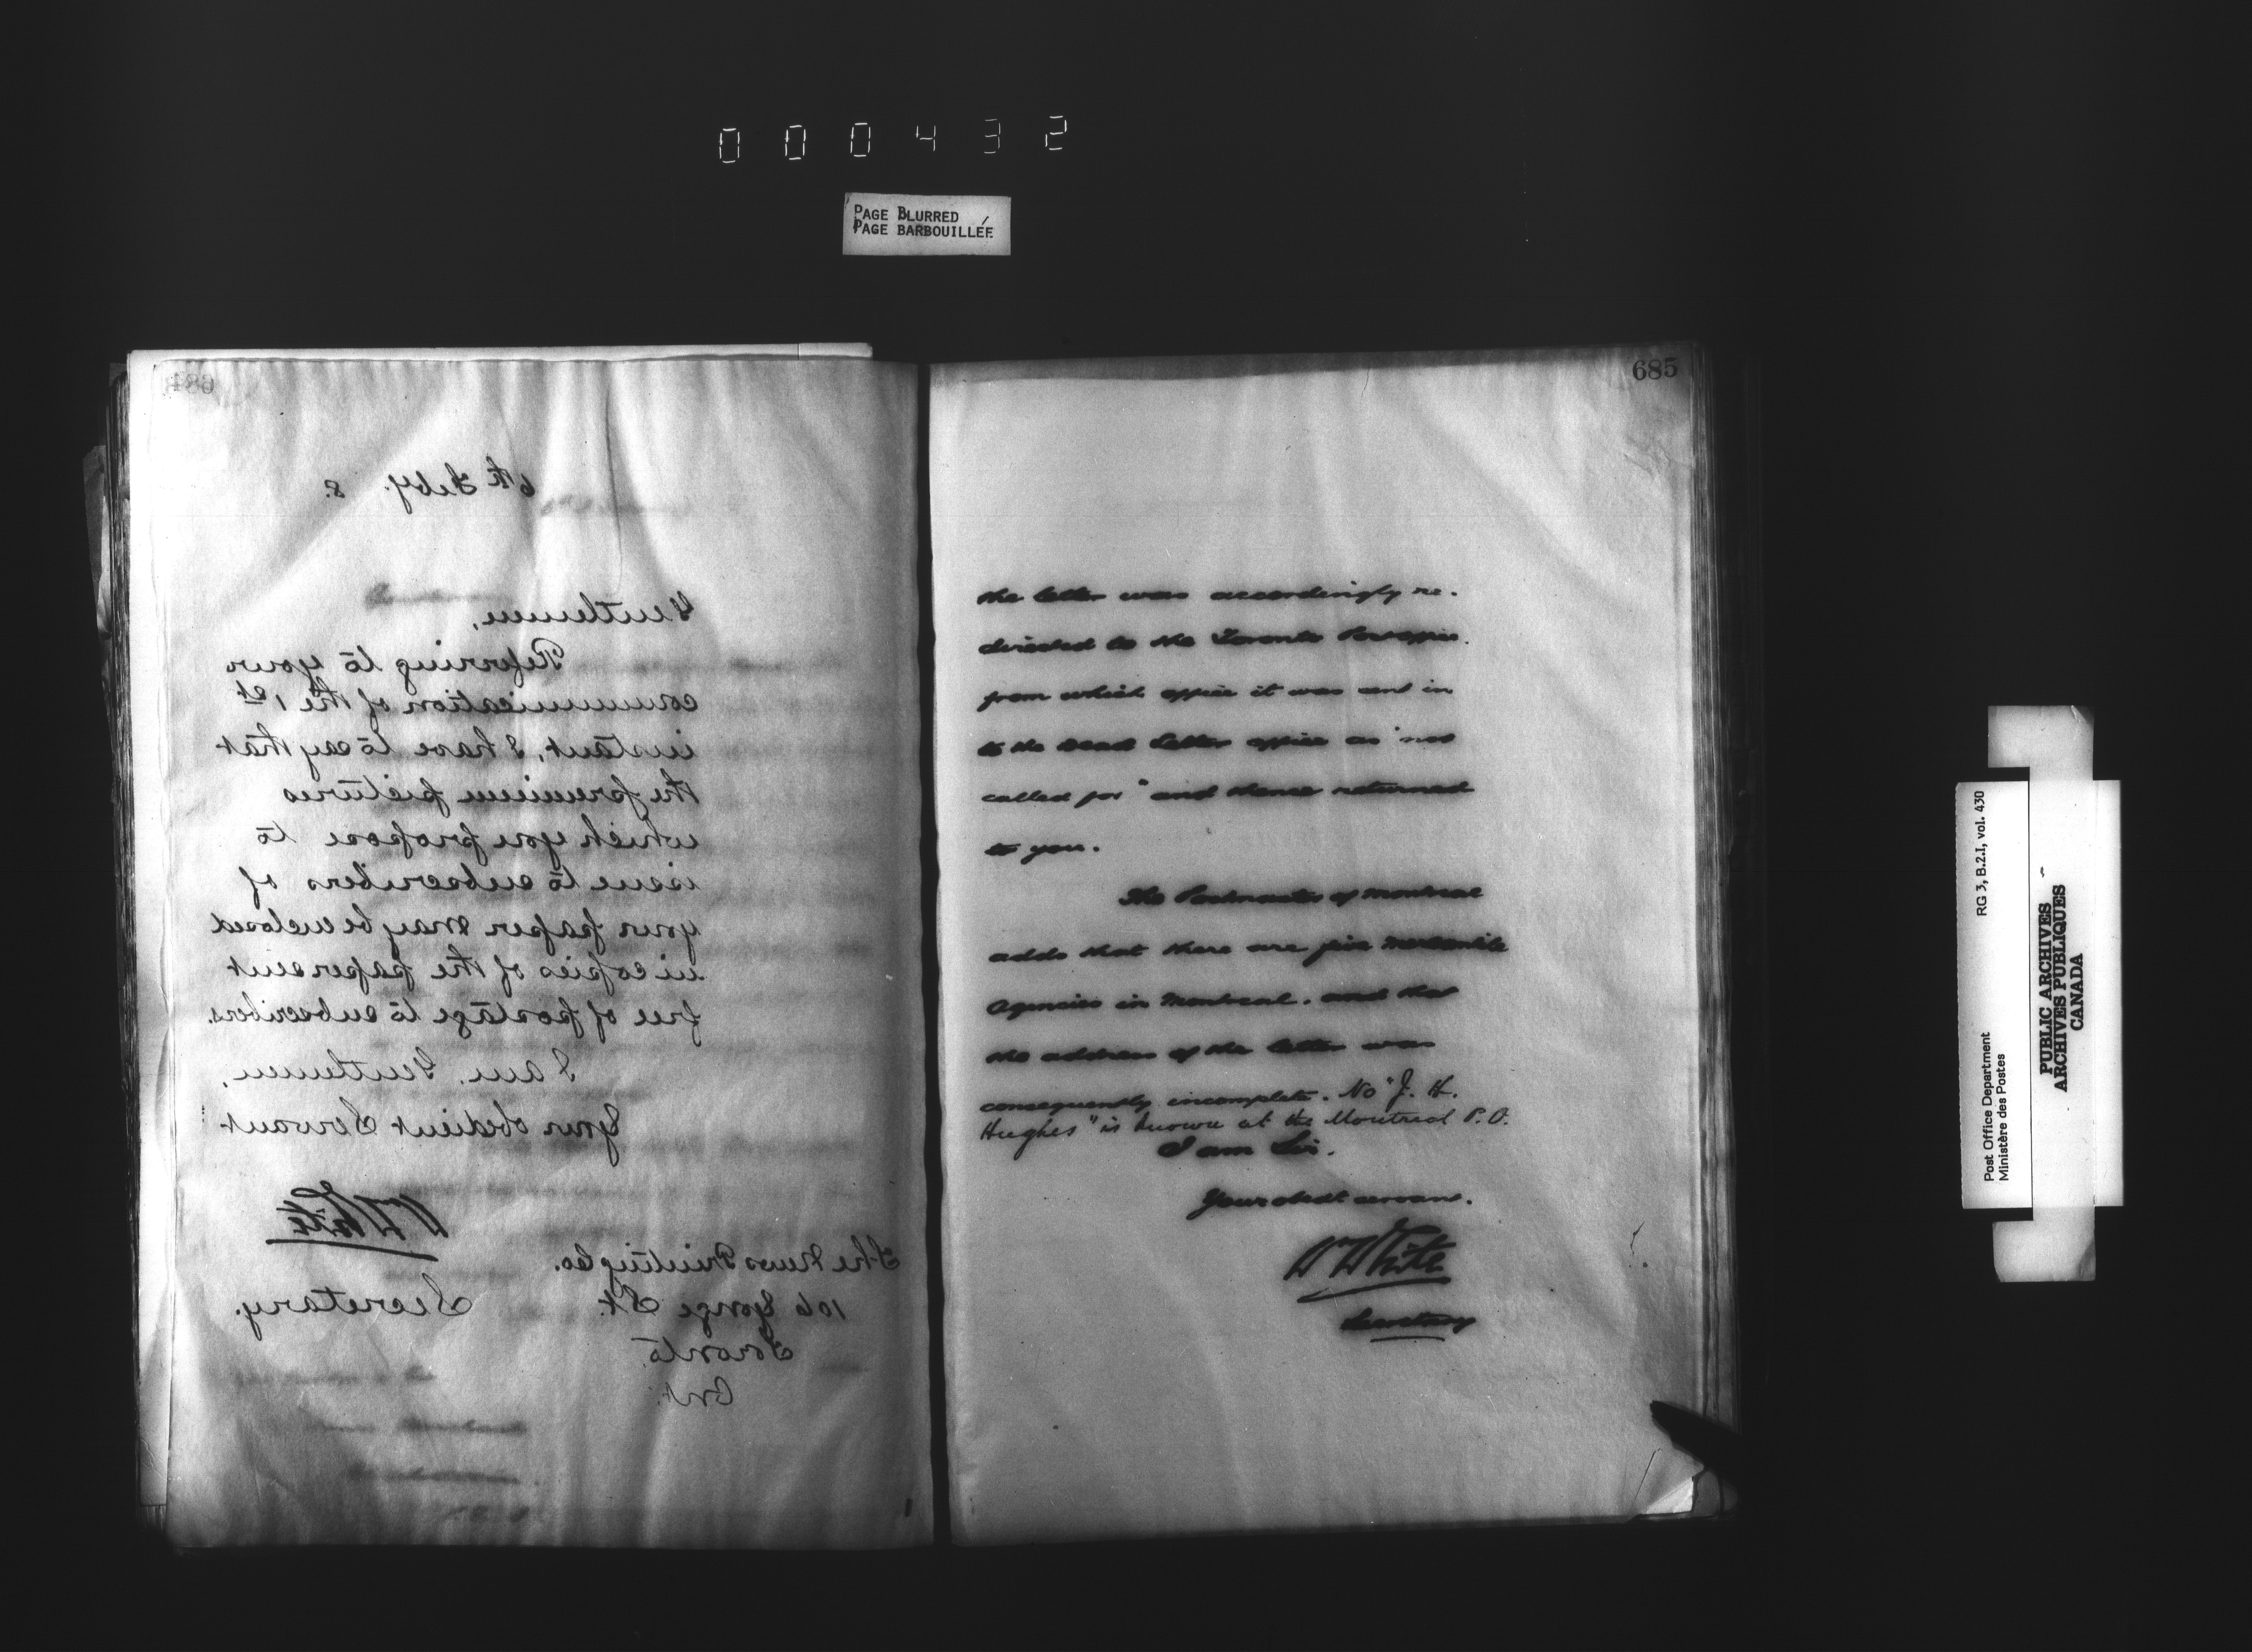 000432
PAGE BLURRED
PAGE BARBOUILLÉE
684
6th Feby. 8.
Gentlemen,
Referring to your
communication of the 1st
instant, I have to say that
the premium pictures
which you propose to
issue to subscribers of
your paper may be enclosed
in copies of the paper sent
free of postage to subscribers.
I am, Gentlemen,
Your obedient Servant
Wm White
Secretary.
The News Printing Co.
106 Yonge St.
Toronto
Ont.
685
the letter was accordingly re-
directed to the Toronto Post office.
from which office it was sent in
to the Dead Letter office as "not
called for" and thence returned
to you.
The Postmaster of Montreal
adds that there are five mercantile
agencies in Montreal, and that
the address of the letter was
consequently incomplete. No "J. H.
Hughes" is known at the Montreal P.O.
I am Sir,
Your obedt servant.
Wm White
Secretary
RG 3, B.2.I, vol. 430
Post Office Department
Ministère des Postes
PUBLIC ARCHIVES
ARCHIVES PUBLIQUES
CANADA